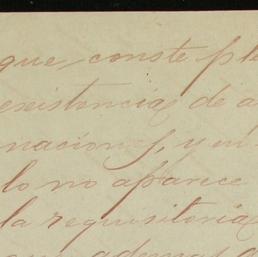 que conste ple
existencias de a
naciones, y en
lo no aparece
la requisitoria
que ademas d